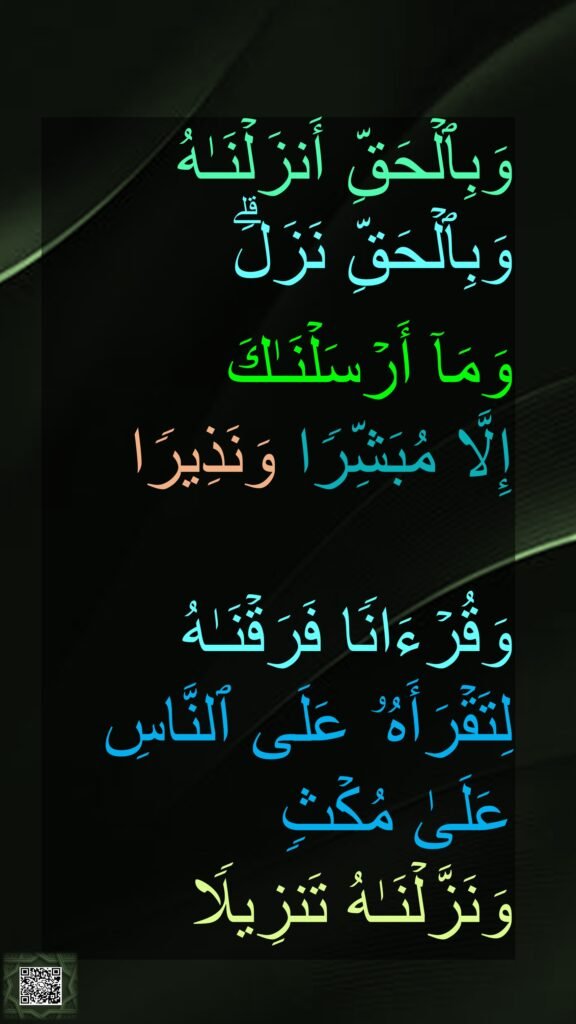 وَبِٱلْحَقِّ أَنزَلْنَـٰهُ
وَبِٱلْحَقِّ نَزَلَ ۗ
وَمَآ أَرْسَلْنَـٰكَ
إِلَّا مُبَشِّرًا وَنَذِيرًا
وَقُرْءَانًا فَرَقْنَـٰهُ
لِتَقْرَأَهُۥ عَلَى ٱلنَّاسِ
عَلَىٰ مُكْثٍ
وَنَزَّلْنَـٰهُ تَنزِيلًا